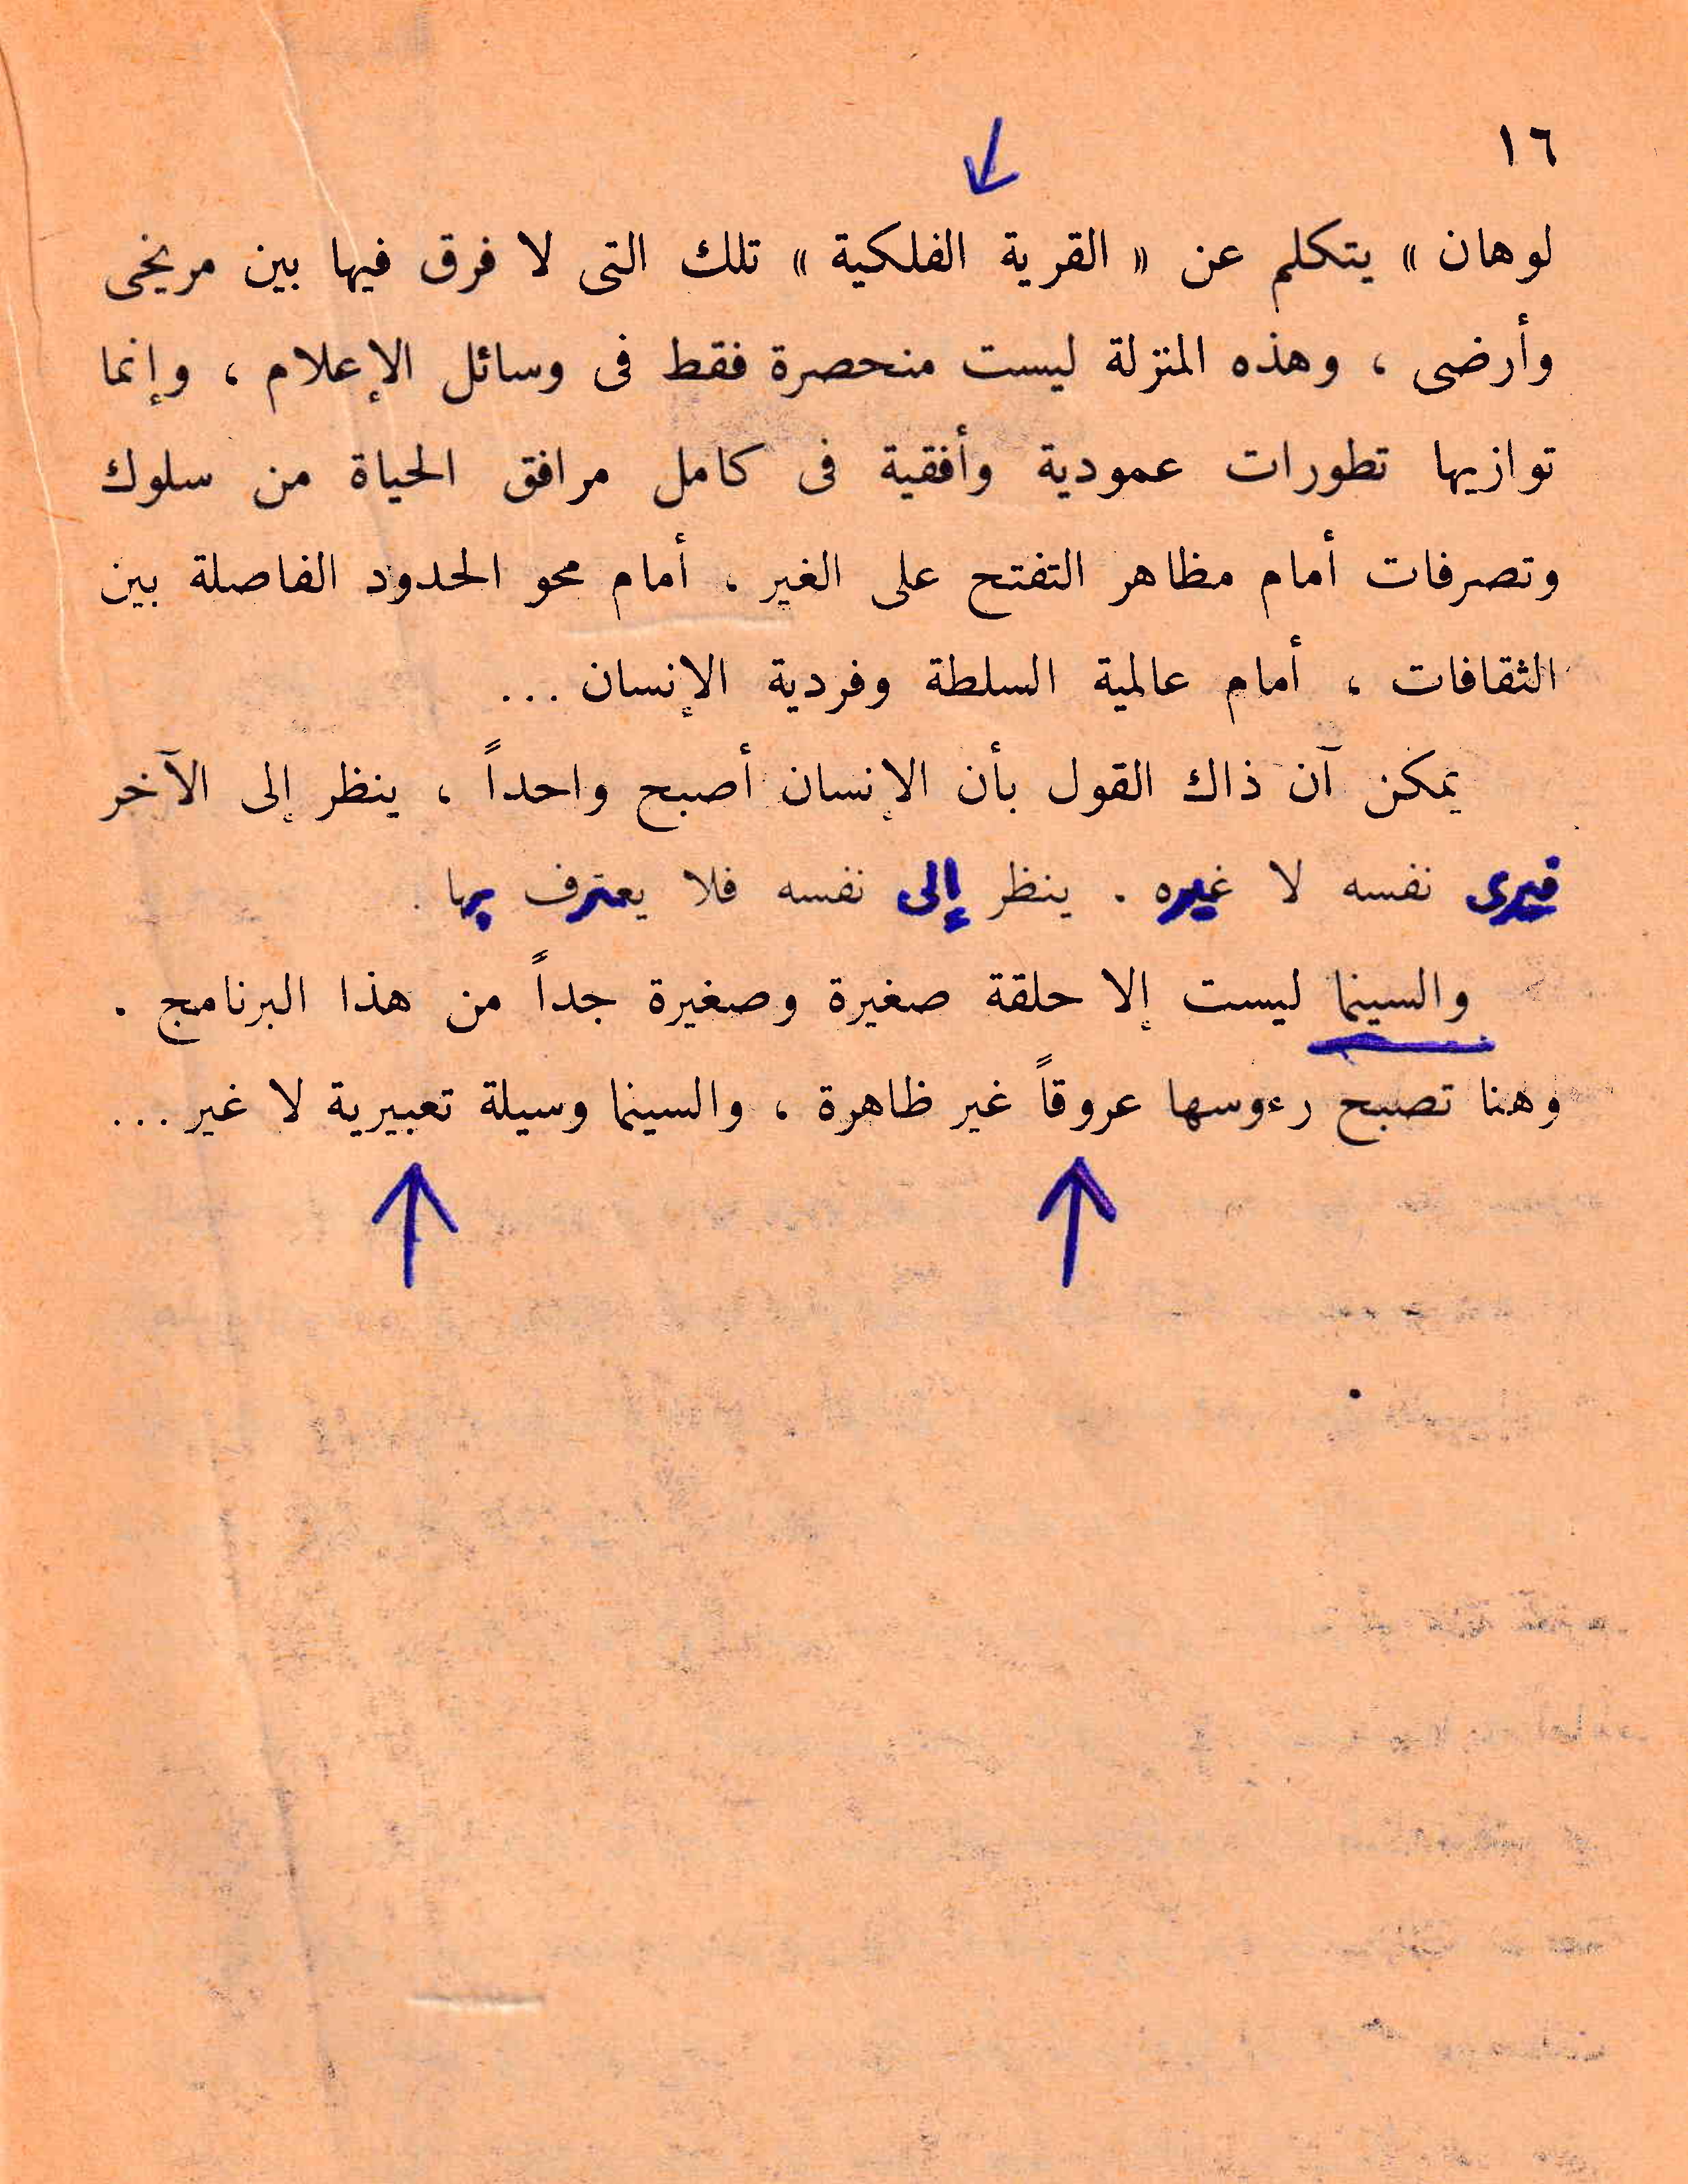 ١٦
لوهان » يتكلم عن « القرية الفلكية » تلك التى لا فرق فيها بين مريخى
وأرضى ، وهذه المنزلة ليست منحصرة فقط فى وسائل الإعلام ، وإنما
توازيها تطورات عمودية وأفقية فى كامل مرافق الحياة من سلوك
وتصرفات أمام مظاهر التفتح على الغير ، أمام محو الحدود الفاصلة بين
الثقافات ، أمام عالمية السلطة وفردية الإنسان ...
يمكن آن ذاك القول بأن الإنسان أصبح واحداً ، ينظر إلى الآخر
فيرى نفسه لا غيره . ينظر إلى نفسه فلا يعترف بها .
والسينما ليست إلا حلقة صغيرة وصغيرة جداً من هذا البرنامج .
وهنا تصبح رءوسها عروقاً غير ظاهرة ، والسينما وسيلة تعبيرية لا غير ...